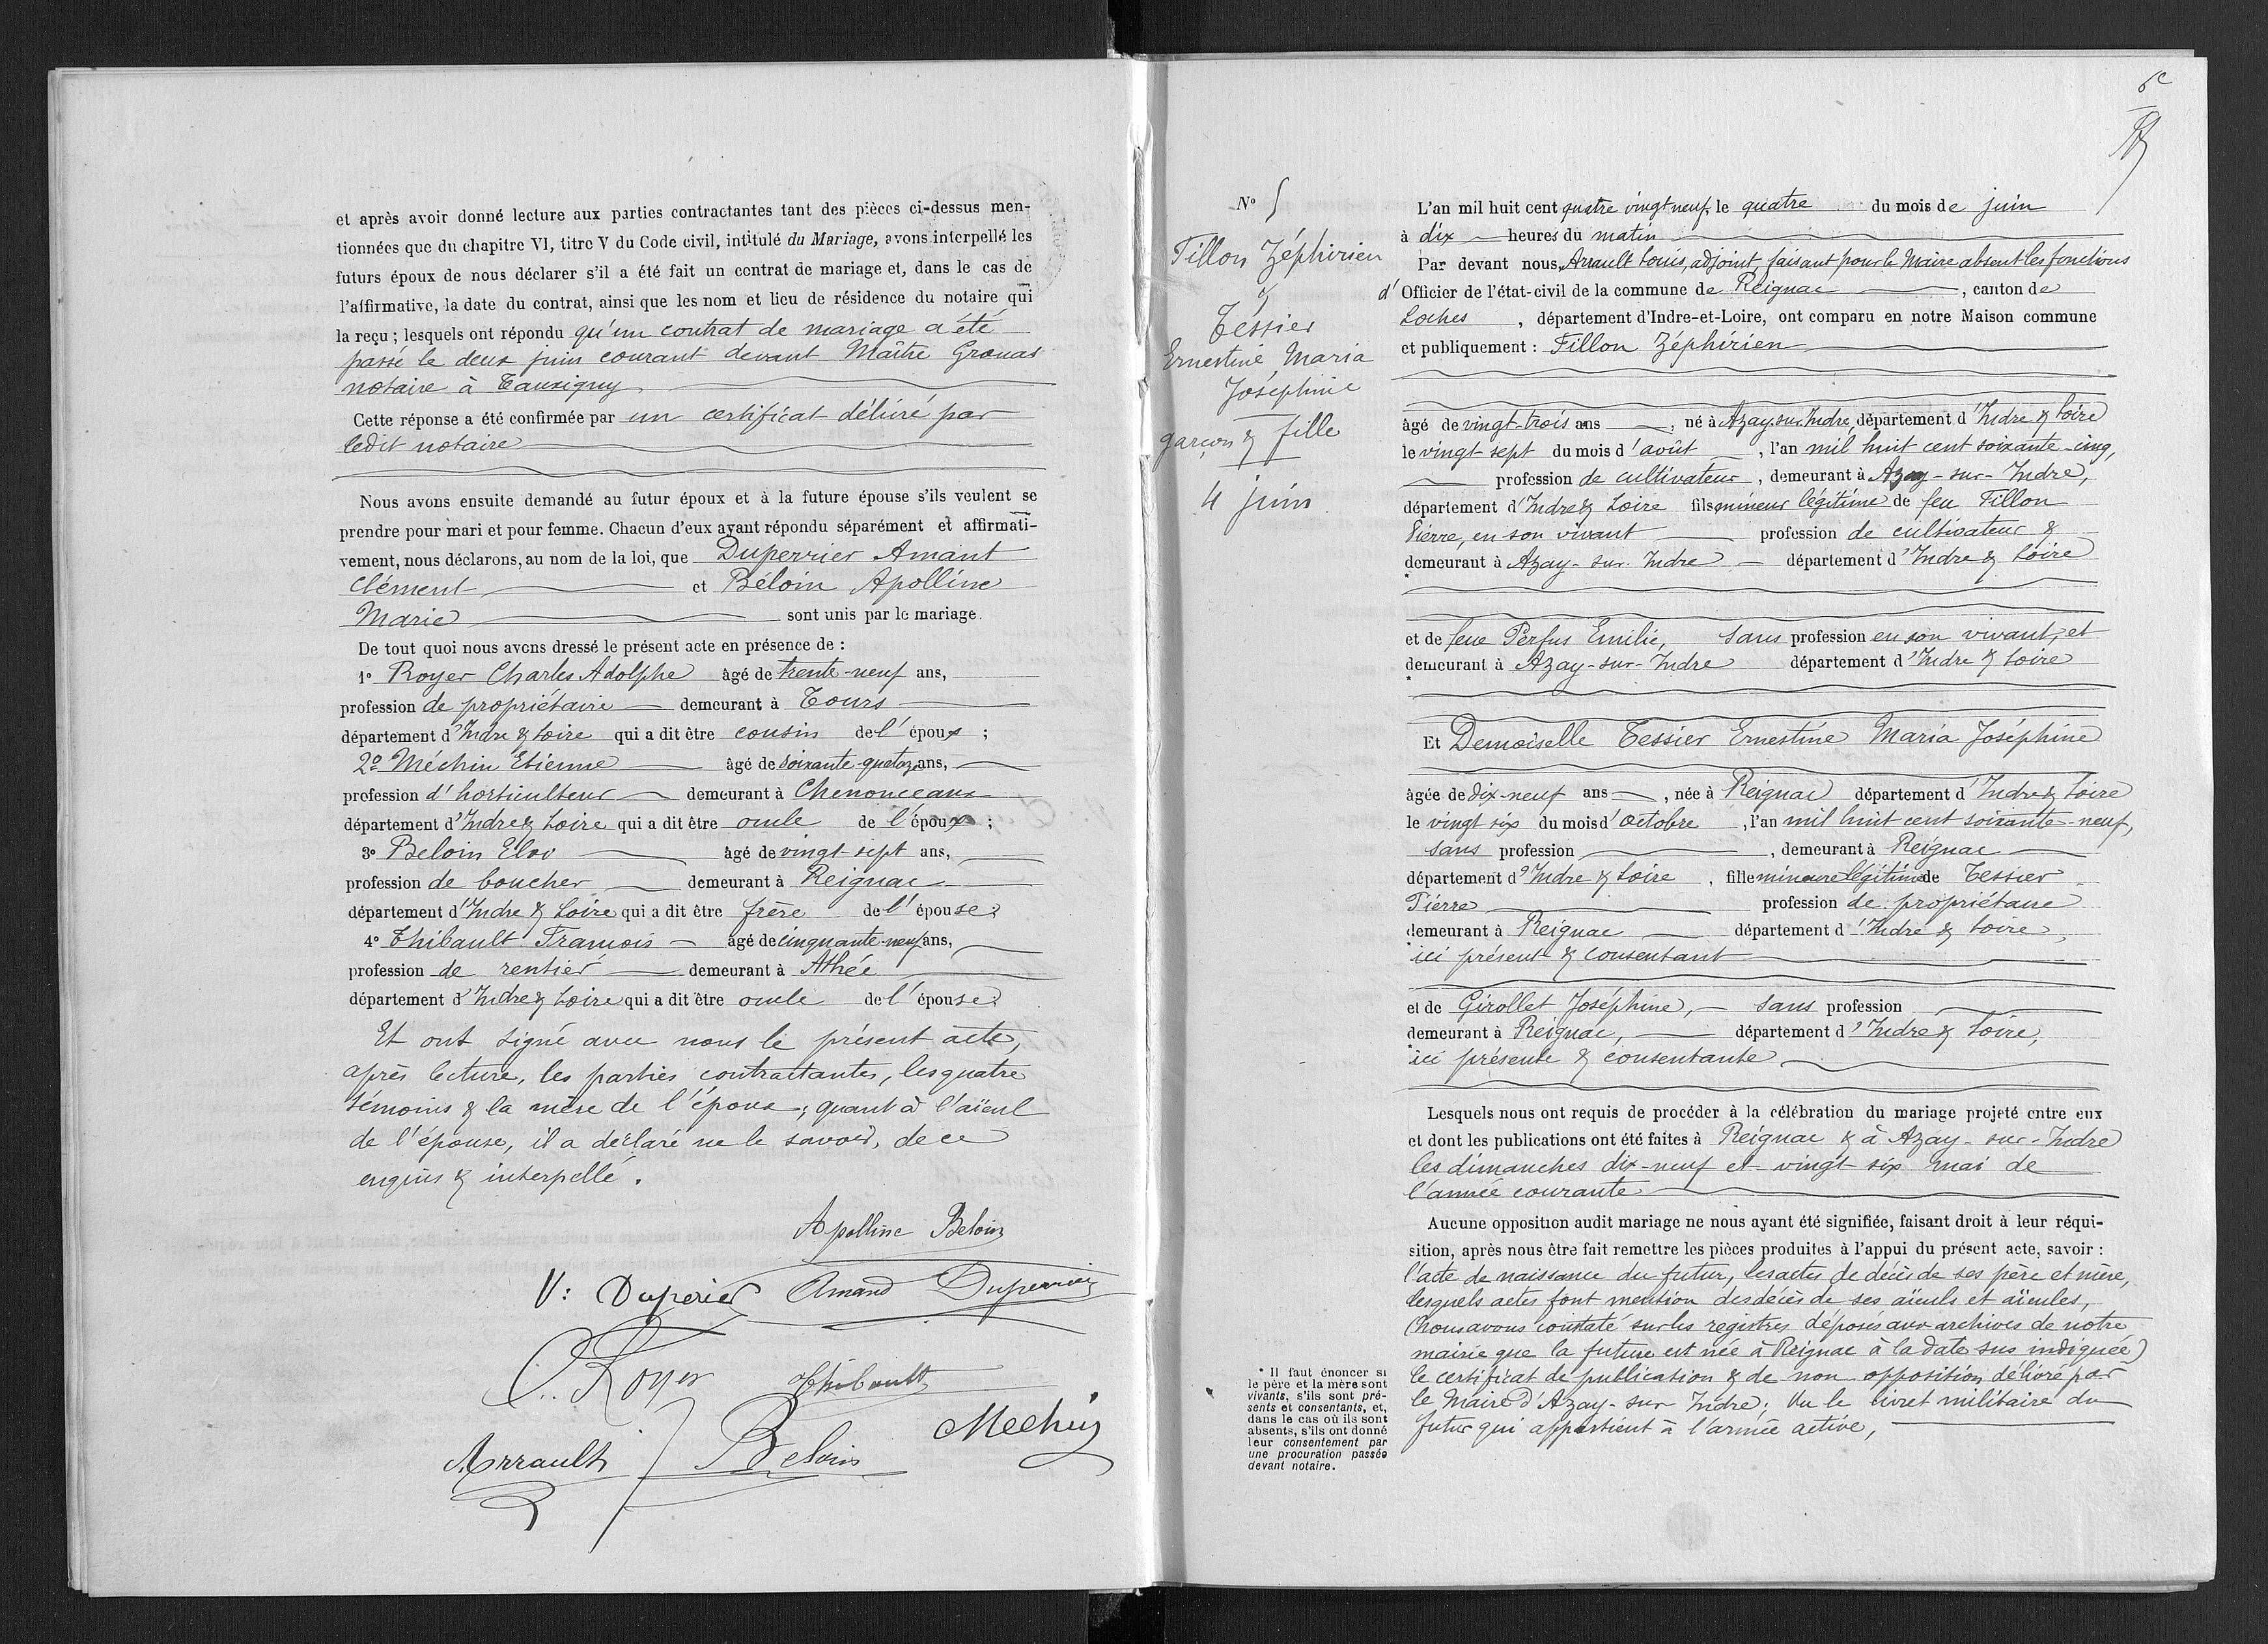 et après avoir donné lecture aux parties contractantes tant des pièces ci-dessus men-
tionnées que du chapitre VI, titre V du Code civil, intitulé du Mariage, avons interpellé les
futurs époux de nous déclarer s'il a été fait un contrat de mariage et, dans le cas de
l'affirmative, la date du contrat, ainsi que les nom et lieu de résidence du notaire qui
la reçu ; lesquels ont répondu qu'un contrat de mariage a été
passé le deux juin courant devant Maître Grouas
notaire à Tauxigny
Cette réponse a été confirmée par un certificat délivré par
ledit notaire
Nous avons ensuite demandé au futur époux et à la future épouse s'ils veulent se
prendre pour mari et pour femme. Chacun d'eux ayant répondu séparément et affirmati-
vement, nous déclarons, au nom de la loi, que Duperrier Amant
Clément et Béloin Apolline
Marie sont unis par le mariage.
De tout quoi nous avons dressé le présent acte en présence de :
1° Royer Charles Adolphe âgé de trente-neuf ans,
profession de propriétaire demeurant à Tours
département d'Indre & Loire qui a dit être cousin de l'époux ;
2° Méchin Etienne âgé de soixante-quatorze ans,
profession d'horticulteur demeurant à Chenonceaux
département d'Indre & Loire qui a dit être oncle de l'époux ;
3° Beloin Eloi âgé de vingt-sept ans,
profession de boucher demeurant à Reignac
département d'Indre & Loire qui a dit être frère de l'épouse
4° Thibault François âgé de cinquante-neuf ans,
profession de rentier demeurant à Athée
département d'Indre & Loire qui a dit être oncle de l'épouse
Et ont signé avec nous le présent acte,
après lecture, les parties contractantes, les quatre
témoins & la mère de l'époux ; quant à l'aïeul
de l'épouse, il a déclaré ne le savoir, de ce
enquis & interpellé.
Apolline Beloin
V: Duperier Amand Duperrier
C. Royer Thibault
Arrault Beloin Mechin
6e
N° 5
Fillon Zéphirien
&
Tessier
Ernestine Maria
Joséphine
garçon & fille
4 juin
L'an mil huit cent quatre vingt neuf, le quatre du mois de juin
à dix heures du matin
Par devant nous, Arrault Louis, adjoint, faisant pour le Maire absent les fonctions
d'Officier de l'état-civil de la commune de Reignac, canton de
Loches, département d'Indre-et-Loire, ont comparu en notre Maison commune
et publiquement : Fillon Zéphirien
âgé de vingt-trois ans, né à Azay-sur-Indre, département d'Indre & Loire
le vingt-sept du mois d'août, l'an mil huit cent soixante-cinq,
profession de cultivateur, demeurant à Azay-sur-Indre,
département d'Indre & Loire fils mineur légitime de feu Fillon
Pierre, en son vivant profession de cultivateur &
demeurant à Azay-sur-Indre département d'Indre & Loire
*
et de feue Perfus Emilie, sans profession en son vivant, et
demeurant à Azay-sur-Indre département d'Indre & Loire
*
Et Demoiselle Tessier Ernestine Maria Joséphine
âgée de dix-neuf ans, née à Reignac département d'Indre & Loire
le vingt six du mois d'octobre, l'an mil huit cent soixante-neuf,
sans profession, demeurant à Reignac
département d'Indre & Loire, fille mineure légitime de Tessier
Pierre profession de propriétaire
demeurant à Reignac département d'Indre & Loire,
* ici présent & consentant
et de Girollet Joséphine, sans profession
demeurant à Reignac, département d'Indre & Loire,
* ici présente & consentante
Lesquels nous ont requis de procéder à la célébration du mariage projeté entre eux
et dont les publications ont été faites à Reignac & à Azay-sur-Indre
les dimanches dix-neuf et vingt six mai de
l'année courante
Aucune opposition audit mariage ne nous ayant été signifiée, faisant droit à leur réqui-
sition, après nous être fait remettre les pièces produites à l'appui du présent acte, savoir :
l'acte de naissance du futur, les actes de décès de ses père et mère,
lesquels actes font mention des décès de ses aïeuls et aïeules,
(Nous avons constaté sur les registres déposés aux archives de notre
mairie que la future est née à Reignac à la date sus indiquée)
le certificat de publication & de non opposition délivré par
le Maire d'Azay-sur Indre ; Vu le livret militaire du
futur qui appartient à l'armée active,
* Il faut énoncer si
le père et la mère sont
vivants, s'ils sont pré-
sents et consentants, et,
dans le cas où ils sont
absents, s'ils ont donné
leur consentement par
une procuration passée
devant notaire.